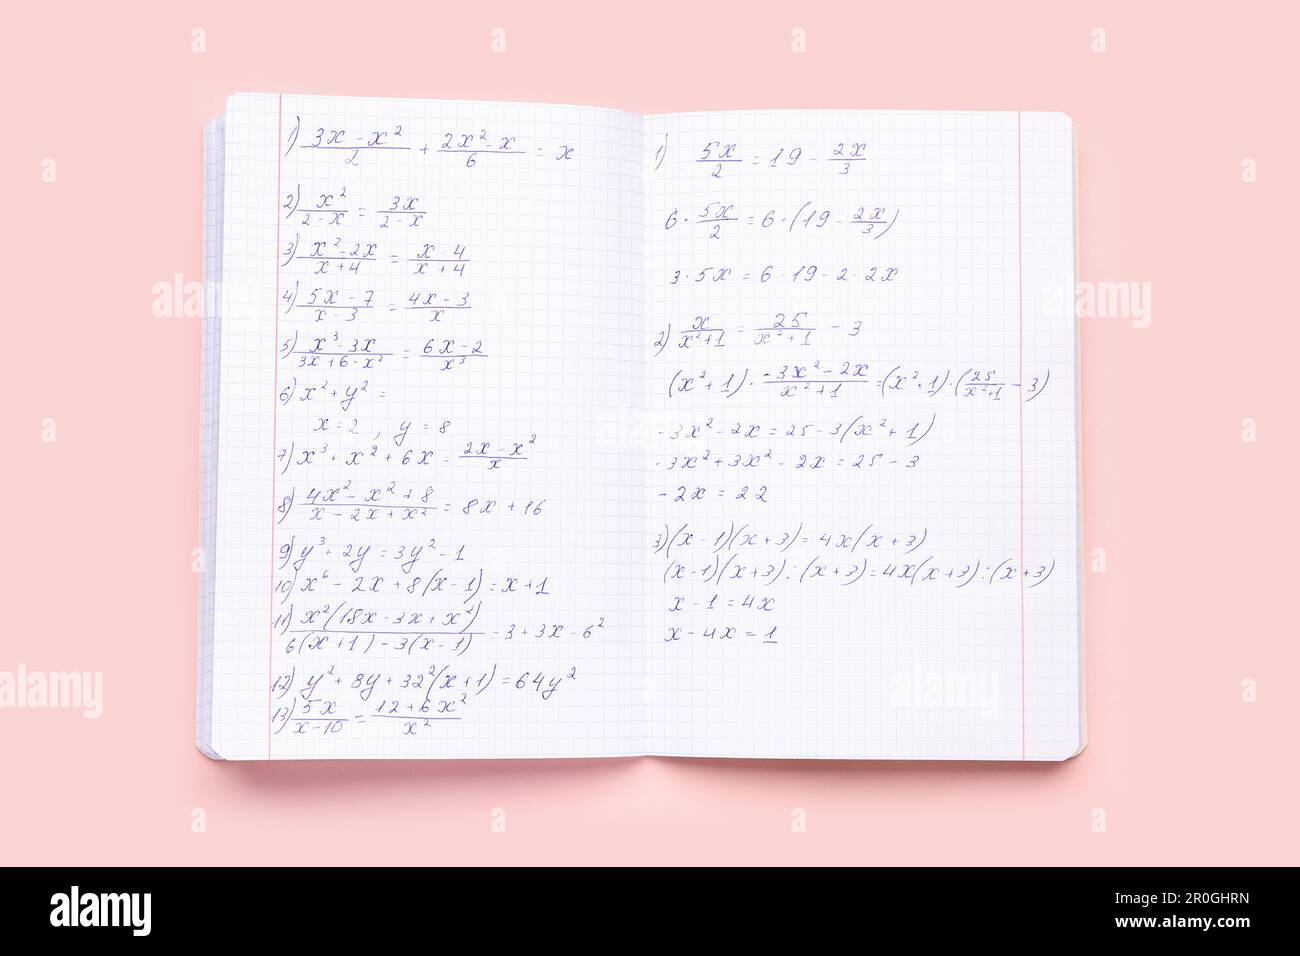 1) (3x - x²)/2 + (2x² - x)/6 = x
2) x²/(2 - x) = 3x/(2 - x)
3) (x² - 2x)/(x + 4) = (x - 4)/(x + 4)
4) (5x - 7)/(x - 3) = (4x - 3)/x
5) (x³ - 3x)/(3x + 6 - x²) = (6x - 2)/x³
6) x² + y² =
x = 2 , y = 8
7) x³ + x² + 6x = (2x - x²)/x
8) (4x² - x² + 8)/(x - 2x + x²) = 8x + 16
9) y³ + 2y = 3y² - 1
10) x⁶ - 2x + 8(x - 1) = x + 1
11) x²(18x - 3x + x²)/(6(x + 1) - 3(x - 1)) - 3 + 3x - 6²
12) y² + 8y + 32²(x + 1) = 64y²
13) 5x/(x - 10) = (12 + 6x²)/x²
1) 5x/2 = 19 - 2x/3
6 · 5x/2 = 6 · (19 - 2x/3)
3 · 5x = 6 · 19 - 2 · 2x
2) x/(x² + 1) = 25/(x² + 1) - 3
(x² + 1) · (-3x² - 2x)/(x² + 1) = (x² + 1) · (25/(x² + 1) - 3)
-3x² - 2x = 25 - 3(x² + 1)
-3x² + 3x² - 2x = 25 - 3
-2x = 22
3) (x - 1)(x + 3) = 4x(x + 3)
(x - 1)(x + 3) : (x + 3) = 4x(x + 3) : (x + 3)
x - 1 = 4x
x - 4x = 1
alamy
Image ID: 2R0GHRN
www.alamy.com